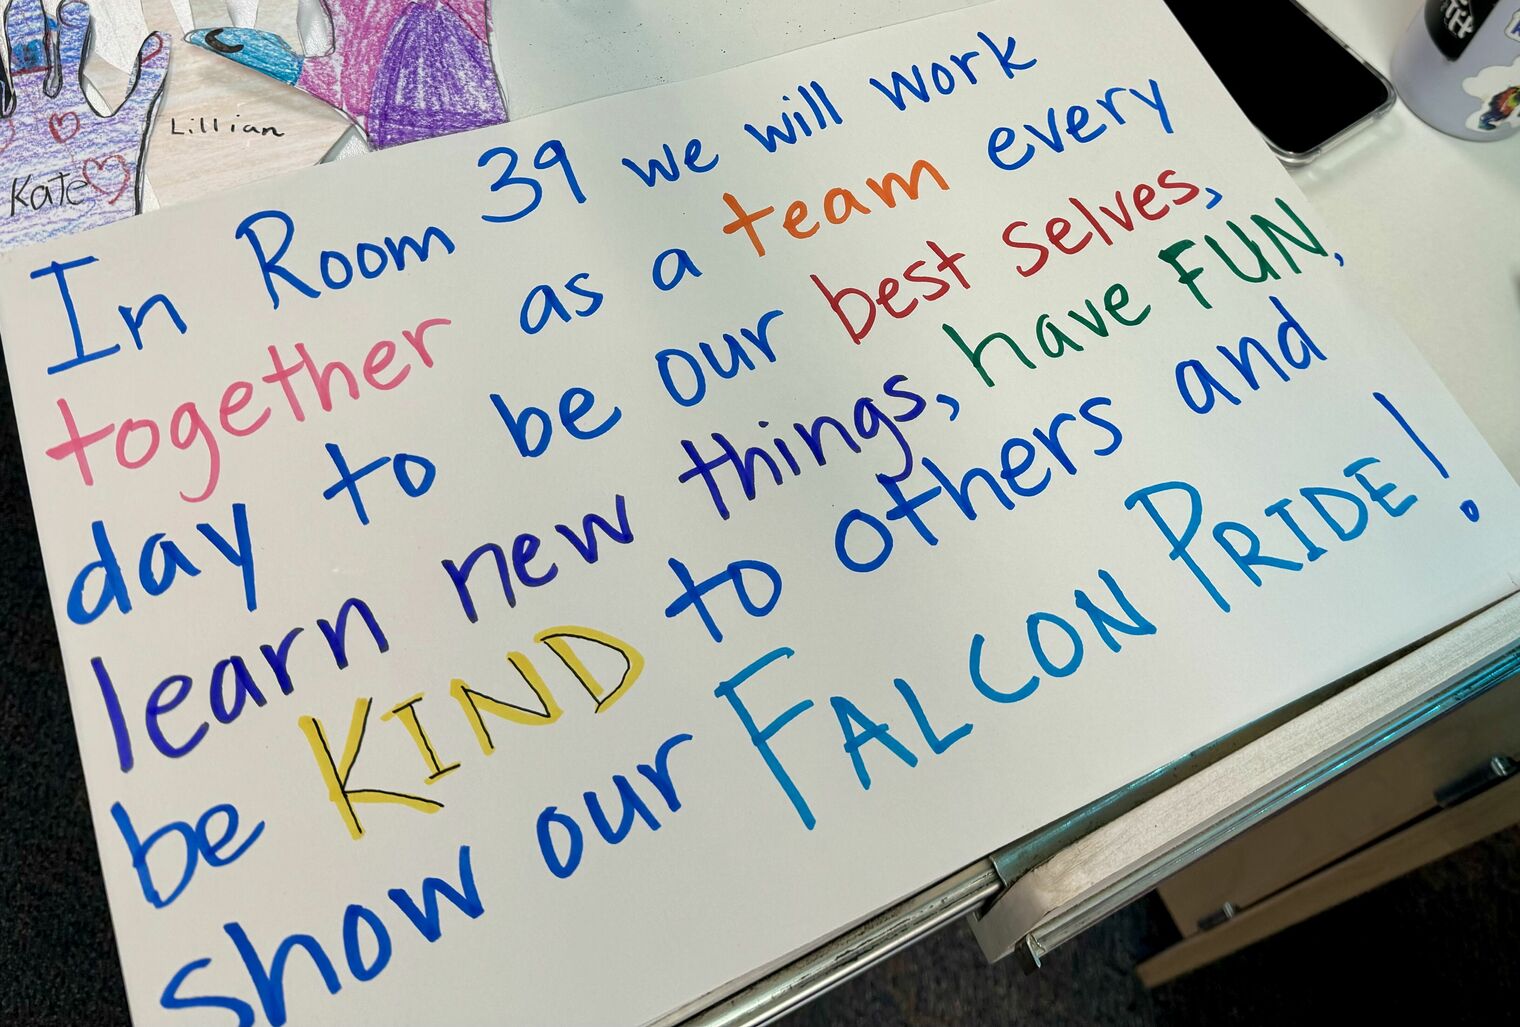 Kate
Lillian
In Room 39 we will work
together as a team every
day to be our best selves,
learn new things, have FUN,
be KIND to others and
show our FALCON PRIDE!